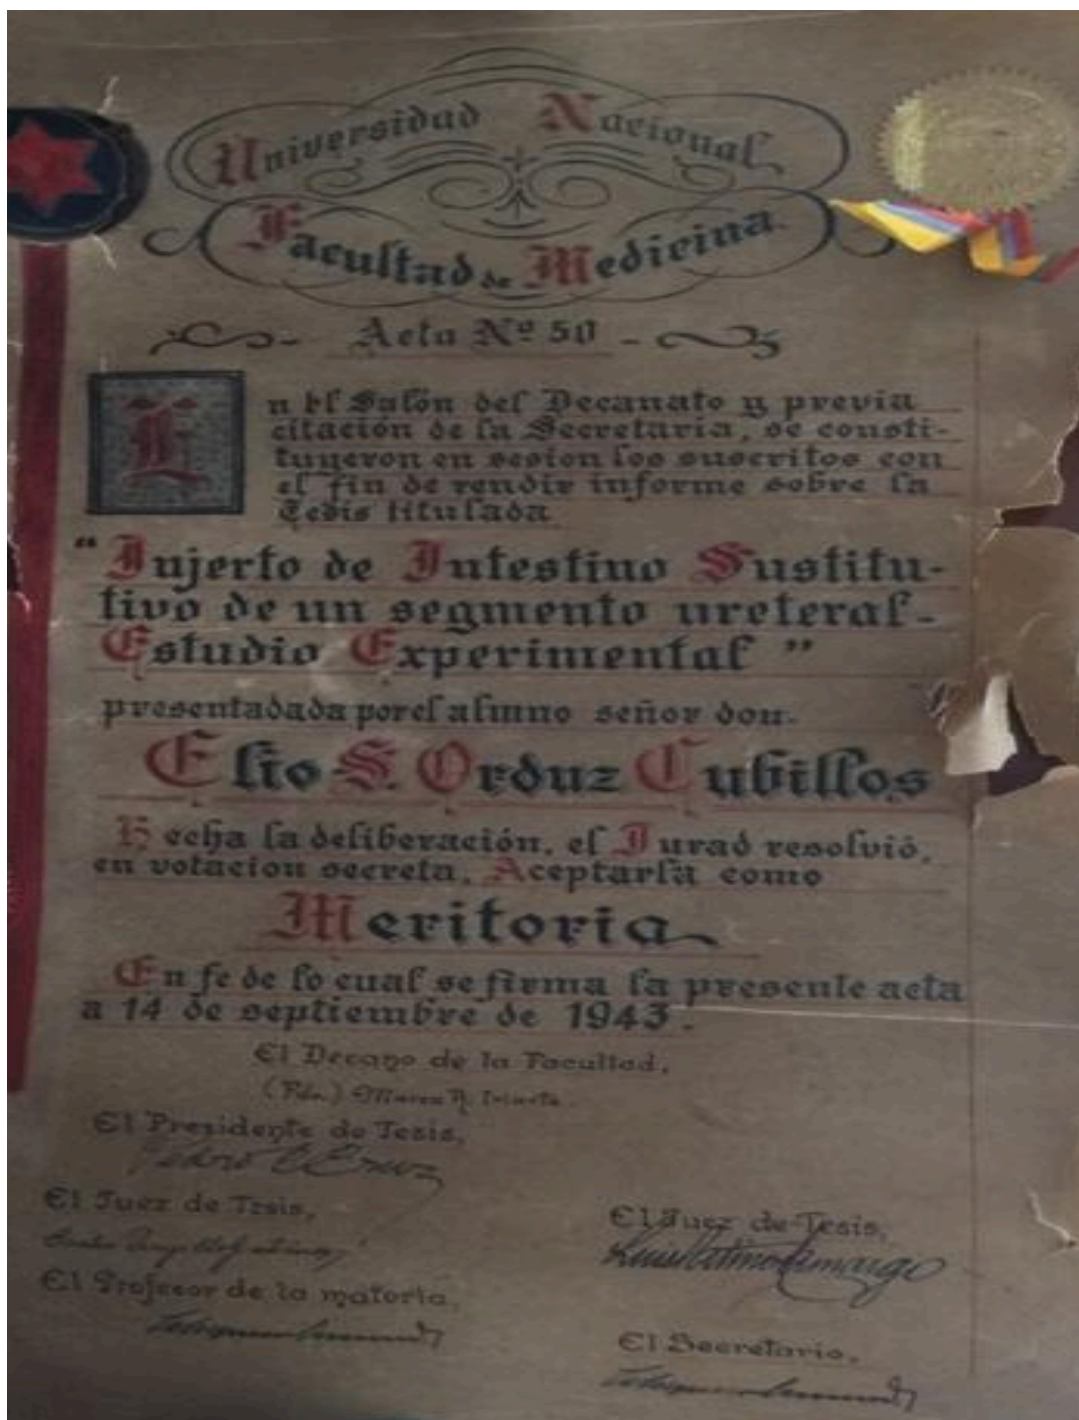 Universidad Nacional
Facultad de Medicina.
Acta Nº 50
En El Salón del Decanato y previa
citación de la Secretaria, se consti-
tuyeron en sesion los suscritos con
el fin de rendir informe sobre la
Tesis titulada
"Injerto de Intestino Sustitu-
tivo de un segmento ureteral-
Estudio Experimental"
presentadada por el alumno señor don.
Elio S. Orduz Cubillos
Hecha la deliberación, el Jurad resolvió,
en votacion secreta, Aceptarla como
Meritoria
En fe de lo cual se firma la presente acta
a 14 de septiembre de 1943.
El Decano de la Facultad,
(Fdo.) A. Iriarte.
El Presidente de Tesis,
El Juez de Tesis,
El Juez de Tesis,
Luis Patino Camargo
El Profesor de la materia,
El Secretario,